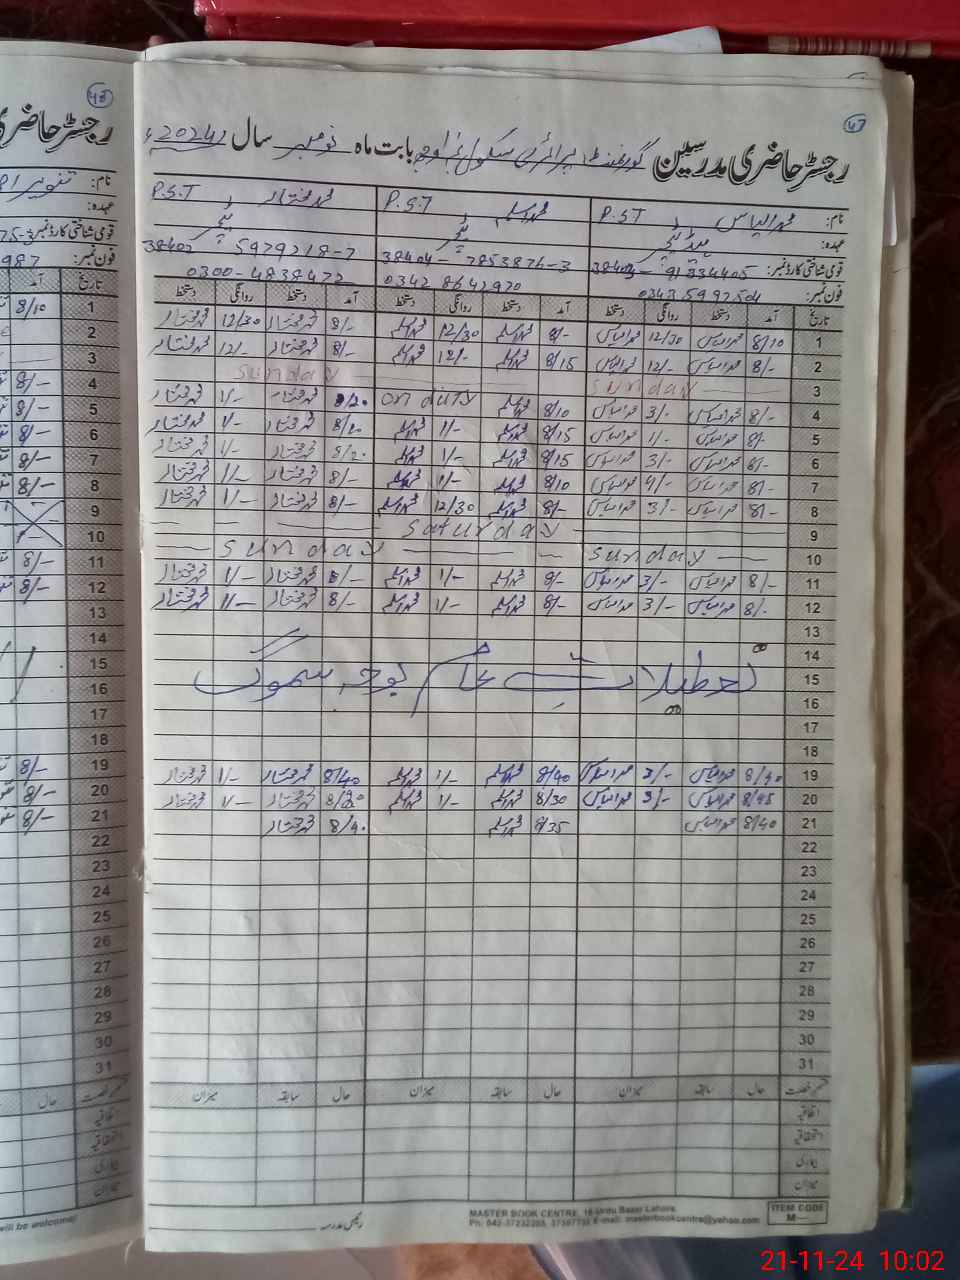 47
رجسٹر حاضری مدرسین گورنمنٹ پرائمری سکول بابت ماہ نومبر سال 2024ء
نام: محمد الیاس P.S.T محمد اسلم P.S.T محمد مختار P.S.T
عہدہ: ہیڈ ٹیچر ٹیچر ٹیچر
قومی شناختی کارڈ نمبر: 38404- 7853876-3 38402 5979218-7
فون نمبر: 0343 5992504 0342 8642920 0300-4838472
تاریخ آمد دستخط روانگی دستخط آمد دستخط روانگی دستخط آمد دستخط روانگی دستخط
1 8/10 محمد الیاس 12/30 محمد الیاس 8/- محمد اسلم 12/30 محمد اسلم 8/- محمد مختار 12/30 محمد مختار
2 8/- محمد الیاس 12/- محمد الیاس 8/15 محمد اسلم 12/- محمد اسلم 8/- محمد مختار 12/- محمد مختار
3 Sunday Sunday
4 8/- محمد الیاس 3/- محمد الیاس 8/10 محمد اسلم on duty 8/20 محمد مختار 1/- محمد مختار
5 8/- محمد الیاس 1/- محمد الیاس 8/15 محمد اسلم 1/- محمد اسلم 8/20 محمد مختار 1/- محمد مختار
6 8/- محمد الیاس 3/- محمد الیاس 8/15 محمد اسلم 1/- محمد اسلم 8/20 محمد مختار 1/- محمد مختار
7 8/- محمد الیاس 4/- محمد الیاس 8/10 محمد اسلم 1/- محمد اسلم 8/- محمد مختار 1/- محمد مختار
8 8/- محمد الیاس 3/- محمد الیاس 8/- محمد اسلم 12/30 محمد اسلم 8/- محمد مختار 1/- محمد مختار
9 Saturday
10 Sunday Sunday
11 8/- محمد الیاس 3/- محمد الیاس 8/- محمد اسلم 1/- محمد اسلم 8/- محمد مختار 1/- محمد مختار
12 8/- محمد الیاس 3/- محمد الیاس 8/- محمد اسلم 1/- محمد اسلم 8/- محمد مختار 1/- محمد مختار
13
14
15 تعطیلات عام بوجہ سموگ
16
17
18
19 8/40 محمد الیاس 3/- محمد الیاس 8/40 محمد اسلم 1/- محمد اسلم 8/40 محمد مختار 1/- محمد مختار
20 8/45 محمد الیاس 3/- محمد الیاس 8/30 محمد اسلم 1/- محمد اسلم 8/30 محمد مختار 1/- محمد مختار
21 8/40 محمد الیاس 8/35 محمد اسلم 8/40 محمد مختار
22
23
24
25
26
27
28
29
30
31
قسم رخصت حال سابقہ میزان حال سابقہ میزان حال سابقہ میزان
اتفاقیہ
استحقاقیہ
بیماری
میزان
رئیس مدرسہ
MASTER BOOK CENTRE, 16-Urdu Bazar Lahore
E-mail: masterbookcentre@yahoo.com
ITEM CODE
M—
رجسٹر حاضری
نام:
عہدہ:
قومی شناختی کارڈ نمبر: 75-3
فون نمبر: 987
تاریخ آمد
1 8/10
2
3
4 8/-
5 8/-
6 8/-
7 8/-
8 8/-
9
10
11 8/-
12 8/-
13
14
15
16
17
18
19 8/-
20 8/-
21 8/-
22
23
24
25
26
27
28
29
30
31
قسم رخصت حال
اتفاقیہ
استحقاقیہ
بیماری
میزان
will be welcome/
21-11-24 10:02